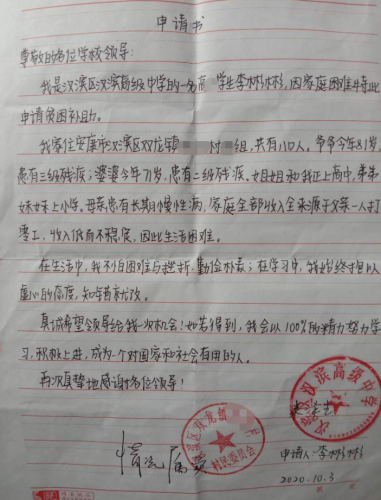 申请书
尊敬的各位学校领导：
我是汉滨区汉滨高级中学的一名高 学生李彬彬，因家庭困难特此
申请贫困补助。
我家住安康市汉滨区双龙镇 村 组，共有八口人。爷爷今年81岁，
患有三级残疾；婆婆今年71岁，患有二级残疾、姐姐和我正上高中，弟弟
妹妹上小学。母亲患有长期慢性病，家庭全部收入全来源于父亲一人打
零工，收入低而不稳定，因此生活困难。
在生活中，我不怕困难与挫折，勤俭朴素；在学习中，我始终坦以
虚心的态度，知错就改。
真诚希望领导给我一次机会！如若得到，我会以100%的精力努力学
习，积极上进，成为一个对国家和社会有用的人。
再次真挚地感谢各位领导！
汉滨高级中学
滨区双龙镇
村民委员会
情况属实
申请人：李彬彬
2020.10.3